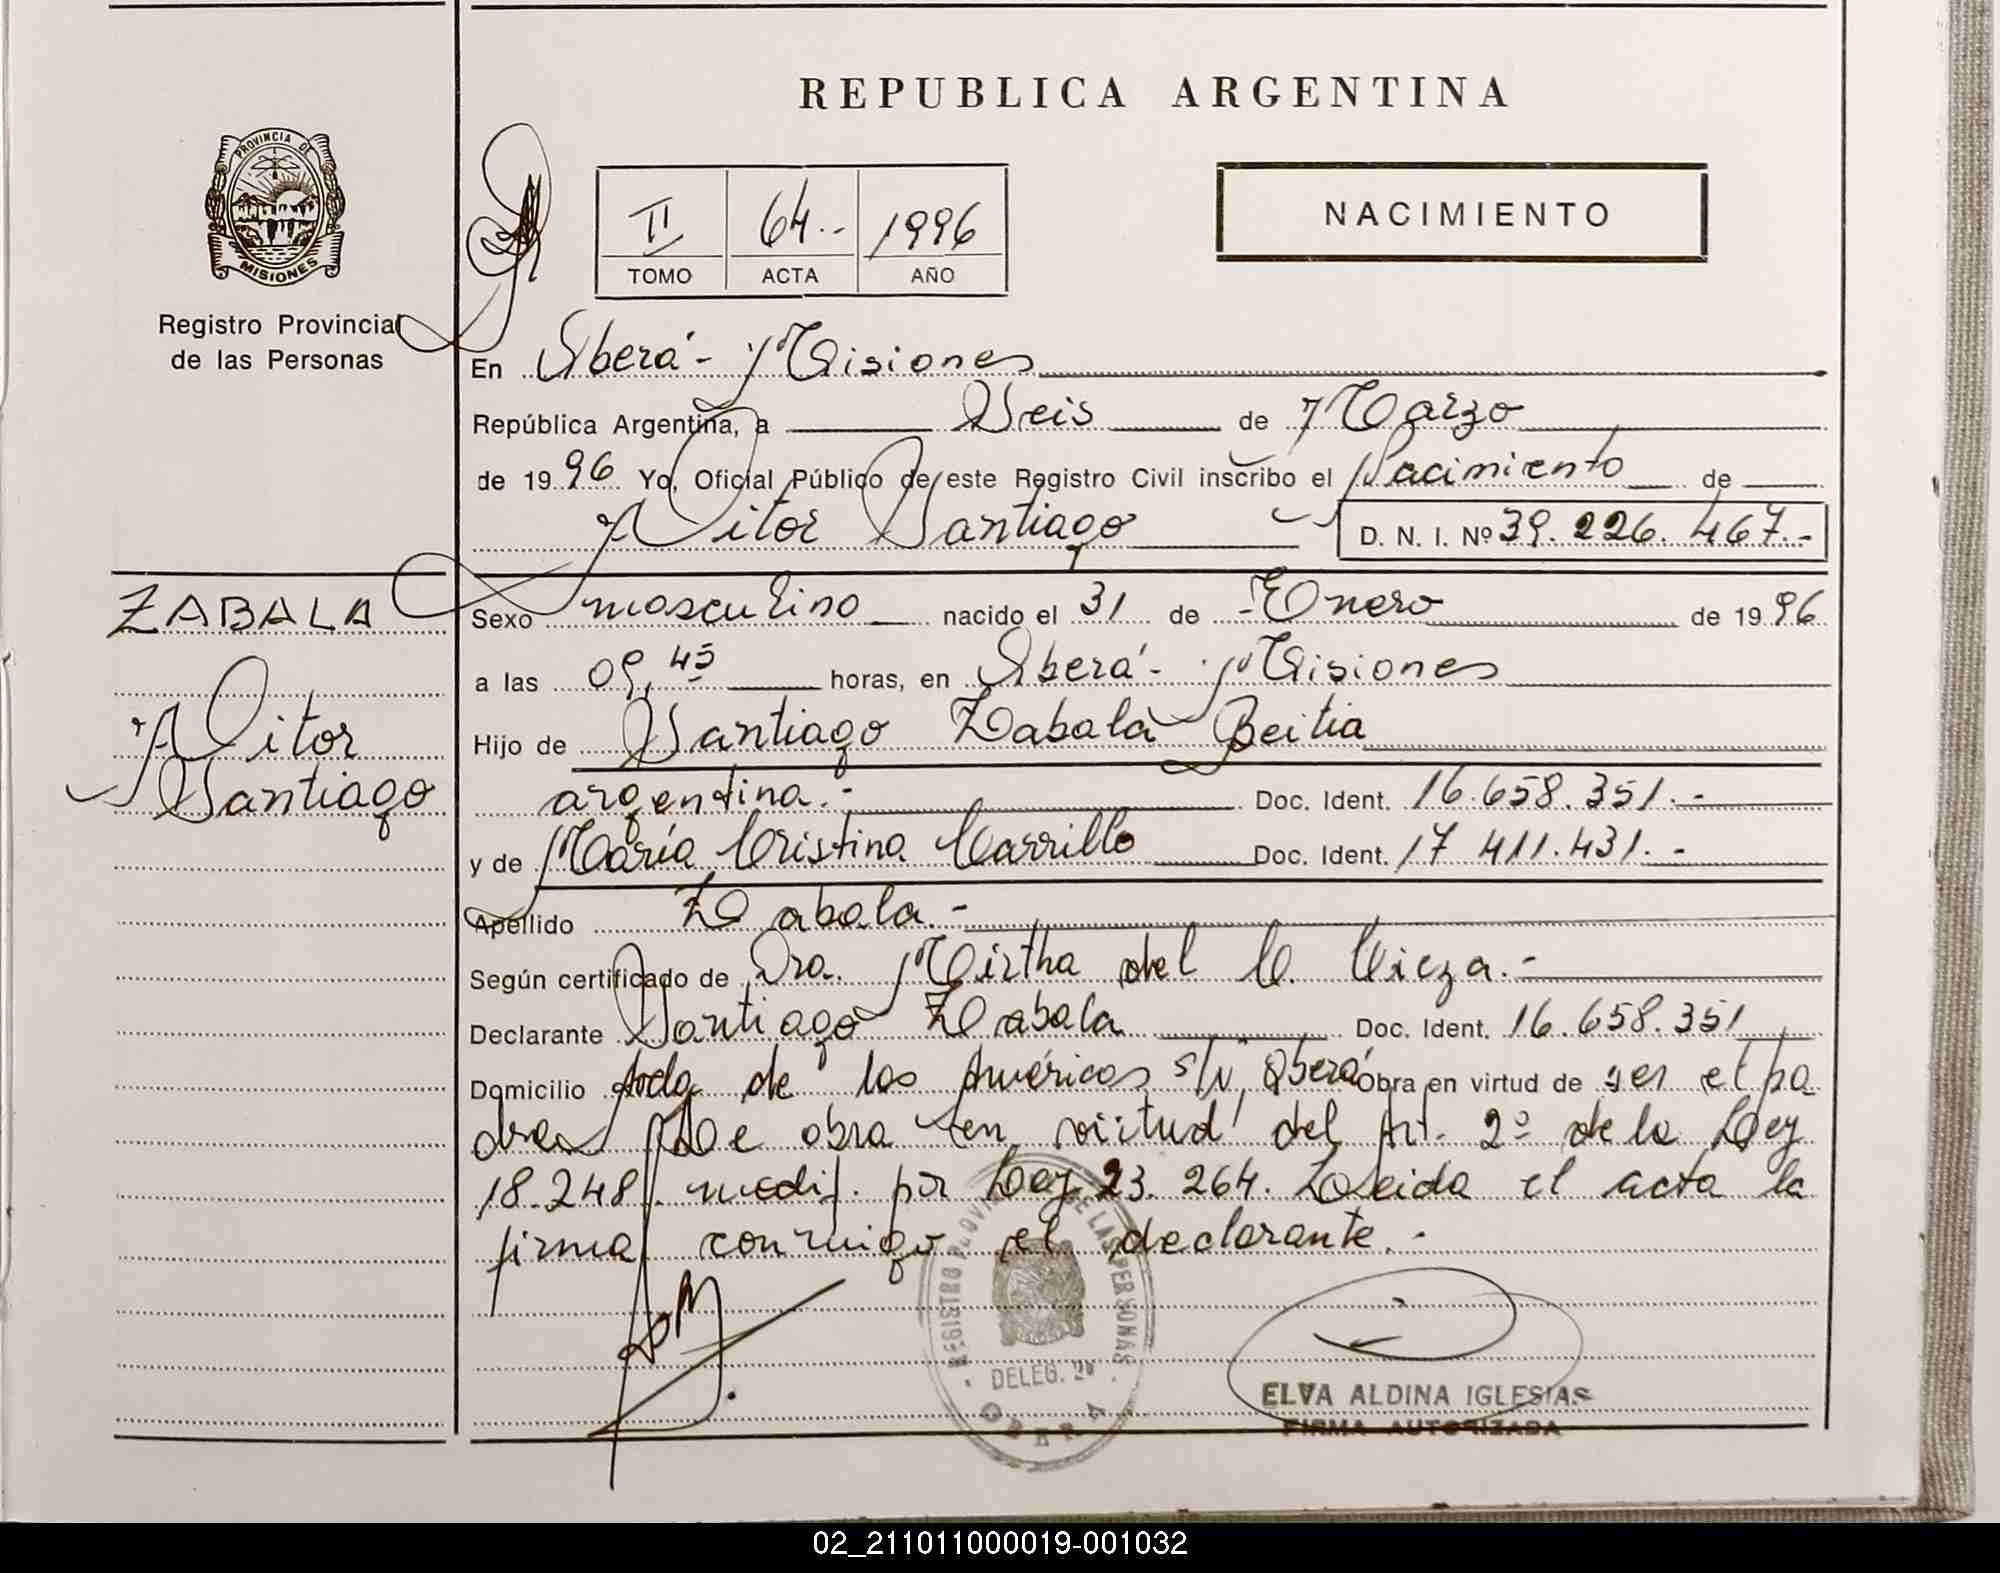 REPUBLICA ARGENTINA
PROVINCIA DE
MISIONES
Registro Provincial
de las Personas
II 64.- 1996
TOMO ACTA AÑO
NACIMIENTO
En Oberá - Misiones
República Argentina, a Seis de Marzo
de 1996 Yo, Oficial Público de este Registro Civil inscribo el Nacimiento de
Vitor Santiago D. N. I. Nº 39.226.467.-
ZABALA
Vitor
Santiago
Sexo masculino nacido el 31 de Enero de 1996
a las 09,45 horas, en Oberá - Misiones
Hijo de Santiago Zabala Beitia
argentina.- Doc. Ident. 16.658.351.-
y de María Cristina Carrillo Doc. Ident. 17 411.431.-
Apellido Zabala.-
Según certificado de Dra. Mirtha del C. Cieza.-
Declarante Santiago Zabala Doc. Ident. 16.658.351
Domicilio Avda de las Américas s/n, Oberá Obra en virtud de ser el pa
dre De obra en virtud del Art. 2º de la Ley
18.248 modif. por Ley 23.264. Leida el acta la
firma conmigo el declarante.-
REGISTRO PROVINCIAL DE LAS PERSONAS
DELEG. 2ª
OBERA
ELVA ALDINA IGLESIAS
FIRMA AUTORIZADA
02_211011000019-001032